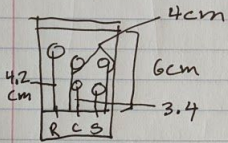 4cm
6cm
4.2
cm
3.4
R C S